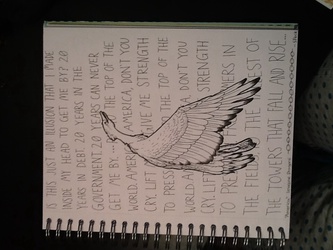 IS THIS JUST AN ILLUSION THAT I MADE
INSIDE MY HEAD TO GET ME BY? 20
YEARS IN DEBT. 20 YEARS IN THE
GOVERNMENT. 20 YEARS CAN NEVER
GET ME BY. TO THE TOP OF THE
WORLD. AMERICA, DON'T YOU
CRY. LIFT GIVE ME STRENGTH
TO PRESS THE TOP OF THE
WORLD DON'T YOU
CRY. LIFT STRENGTH
TO IN
THE THE REST OF
THE TOWERS THAT FALL AND RISE...